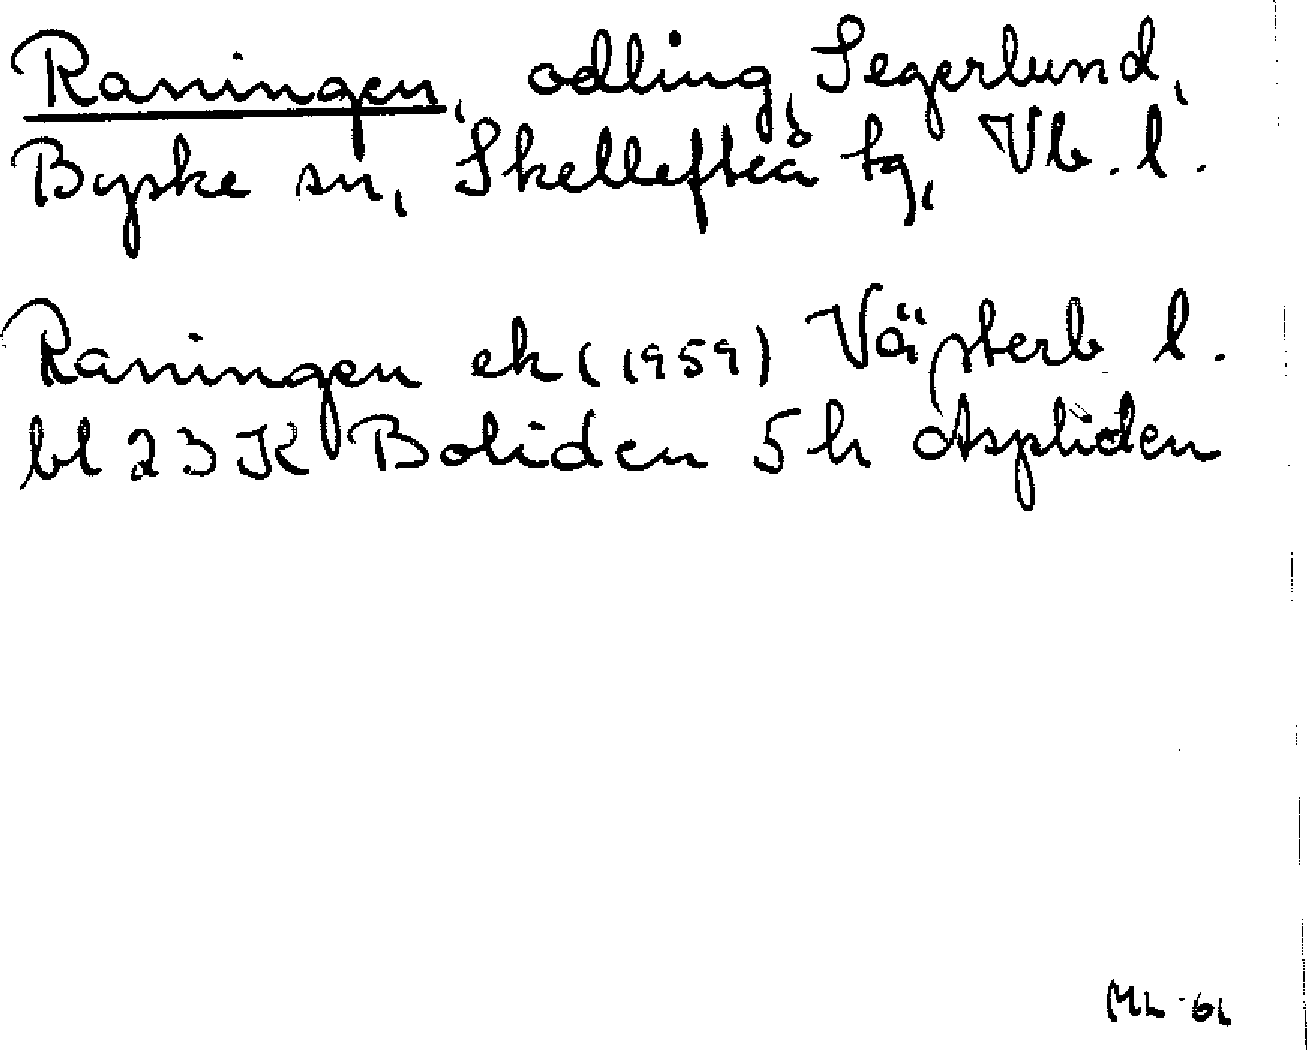 Raningen, odling, Segerlund,
Byske sn, Skellefteå tg, Vb. l.
Raningen ek (1959) Västerb l.
bl 23 K Boliden 5 h Aspliden